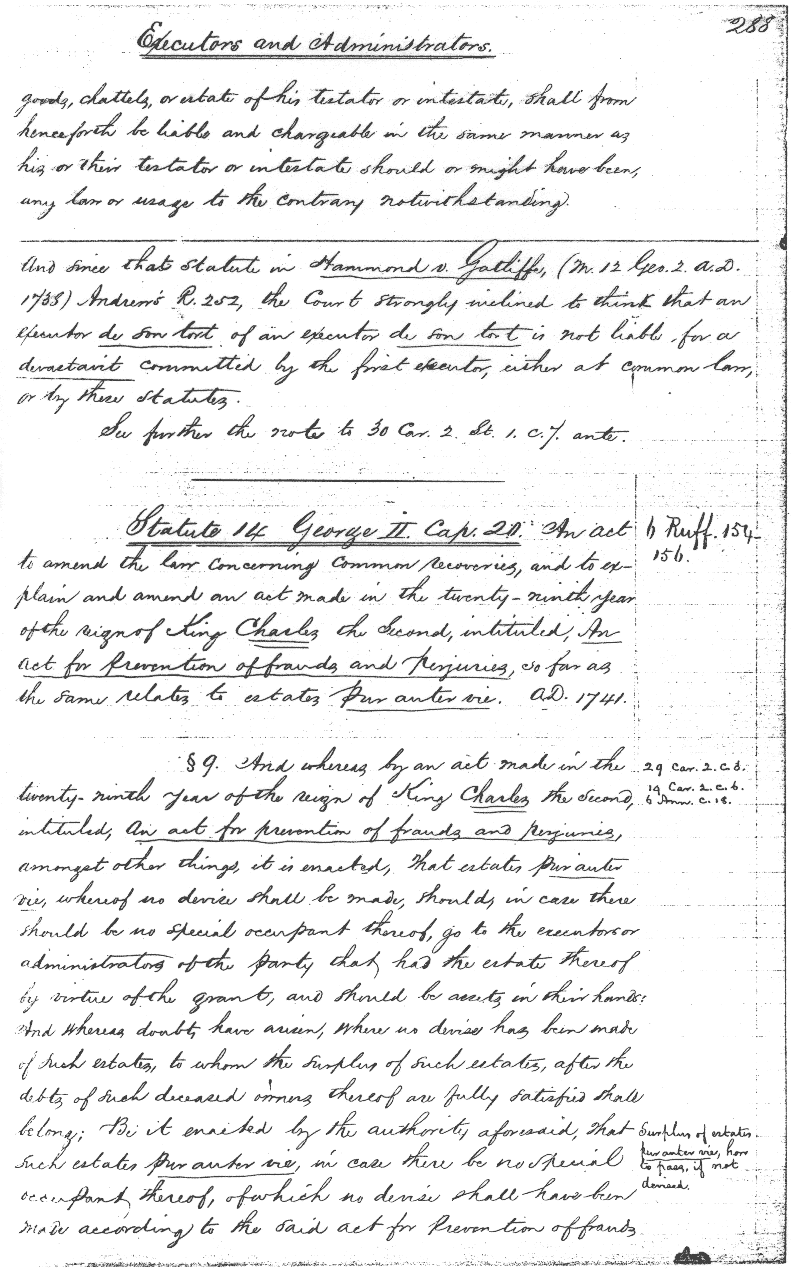 288
Executors and Administrators.
goods, chattels, or estate of his testator or intestate, shall from
henceforth be liable and chargeable in the same manner as
his or their testator or intestate should or might have been,
any law or usage to the contrary notwithstanding.
And since that statute in Hammond v. Gatliffe, (M. 12 Geo. 2. A.D.
1738) Andrew's R. 252, the Court strongly inclined to think that an
executor de son tort of an executor de son tort is not liable for a
devastavit committed by the first executor, either at common law,
or by these statutes.
See further the note to 30 Car. 2. St. 1. c. 7. ante.
Statute 14 George II. Cap. 20. An act
to amend the law concerning common recoveries, and to ex-
plain and amend an act made in the twenty-ninth year
of the reign of King Charles the Second, intituled, An
act for Prevention of frauds and Perjuries, so far as
the same relates to estates Pur auter vie. A.D. 1741.
6 Ruff. 154-
156.
§ 9. And whereas by an act made in the
twenty-ninth year of the reign of King Charles the Second,
intituled, An act for prevention of frauds and perjuries,
amongst other things, it is enacted, That estates Pur auter
vie, whereof no devise shall be made, should, in case there
should be no special occupant thereof, go to the executors or
administrators of the Party that had the estate thereof
by virtue of the grant, and should be assets in their hands:
And whereas doubts have arisen, where no devise has been made
of such estates, to whom the surplus of such estates, after the
debts of such deceased owners thereof are fully satisfied shall
belong; Be it enacted by the authority aforesaid, That
such estates Pur auter vie, in case there be no special
occupant thereof, of which no devise shall have been
made according to the said act for Prevention of frauds
29 Car. 2. c. 3.
14 Car. 2. c. 6.
6 Ann. c. 18.
Surplus of estates
pur auter vie, how
to pass, if not
devised.